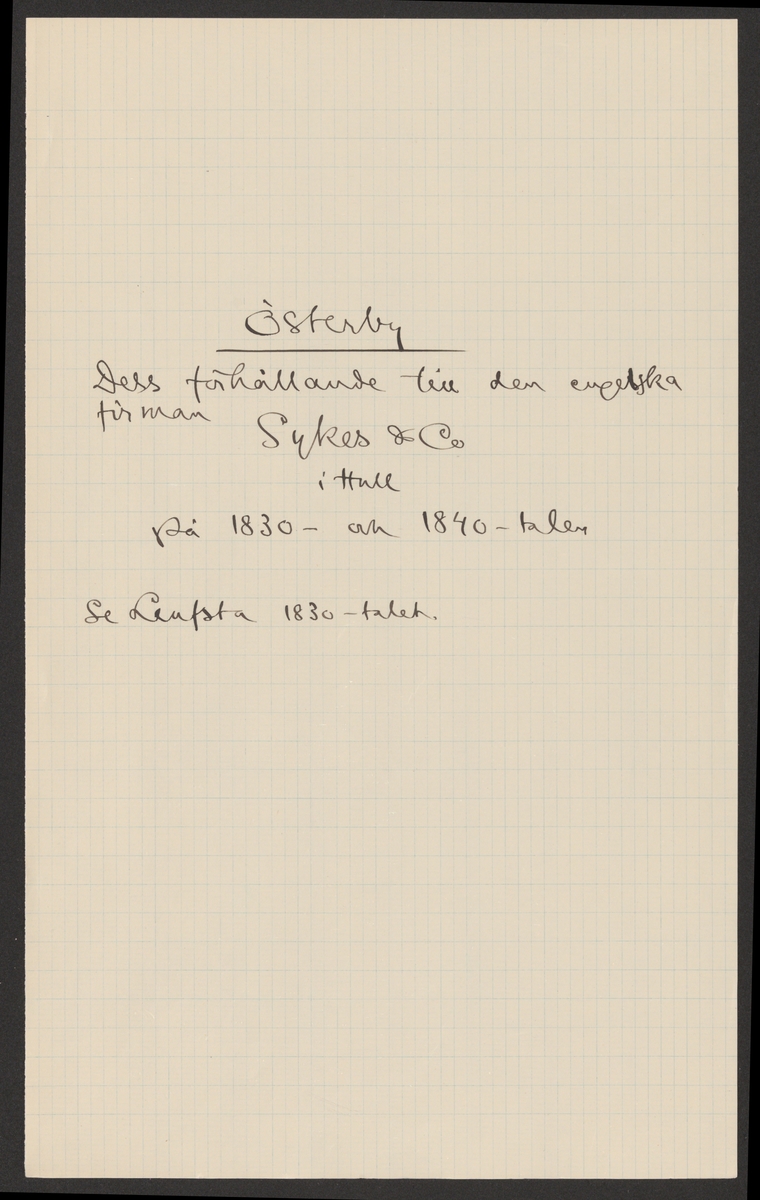 Österby
Dess förhållande till den engelska
firman
Sykes & Co
i Hull
på 1830– och 1840–talen
Se Leufsta 1830–talet.